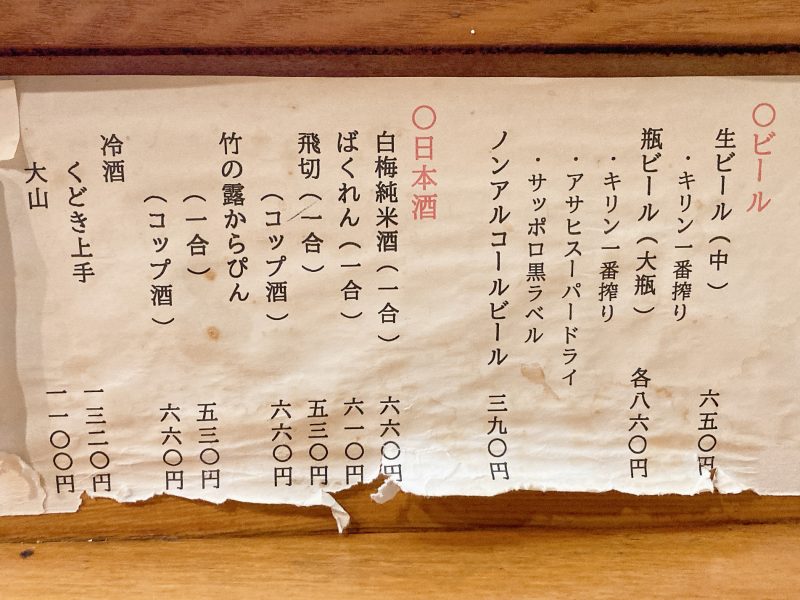 〇ビール
生ビール（中） 六五〇円
・キリン一番搾り
瓶ビール（大瓶） 各八六〇円
・キリン一番搾り
・アサヒスーパードライ
・サッポロ黒ラベル
ノンアルコールビール 三九〇円
〇日本酒
白梅純米酒（一合） 六六〇円
ばくれん（一合） 六一〇円
飛切（一合） 五三〇円
（コップ酒） 六六〇円
竹の露からぴん
（一合） 五三〇円
（コップ酒） 六六〇円
冷酒
くどき上手 一三二〇円
大山 一一〇〇円